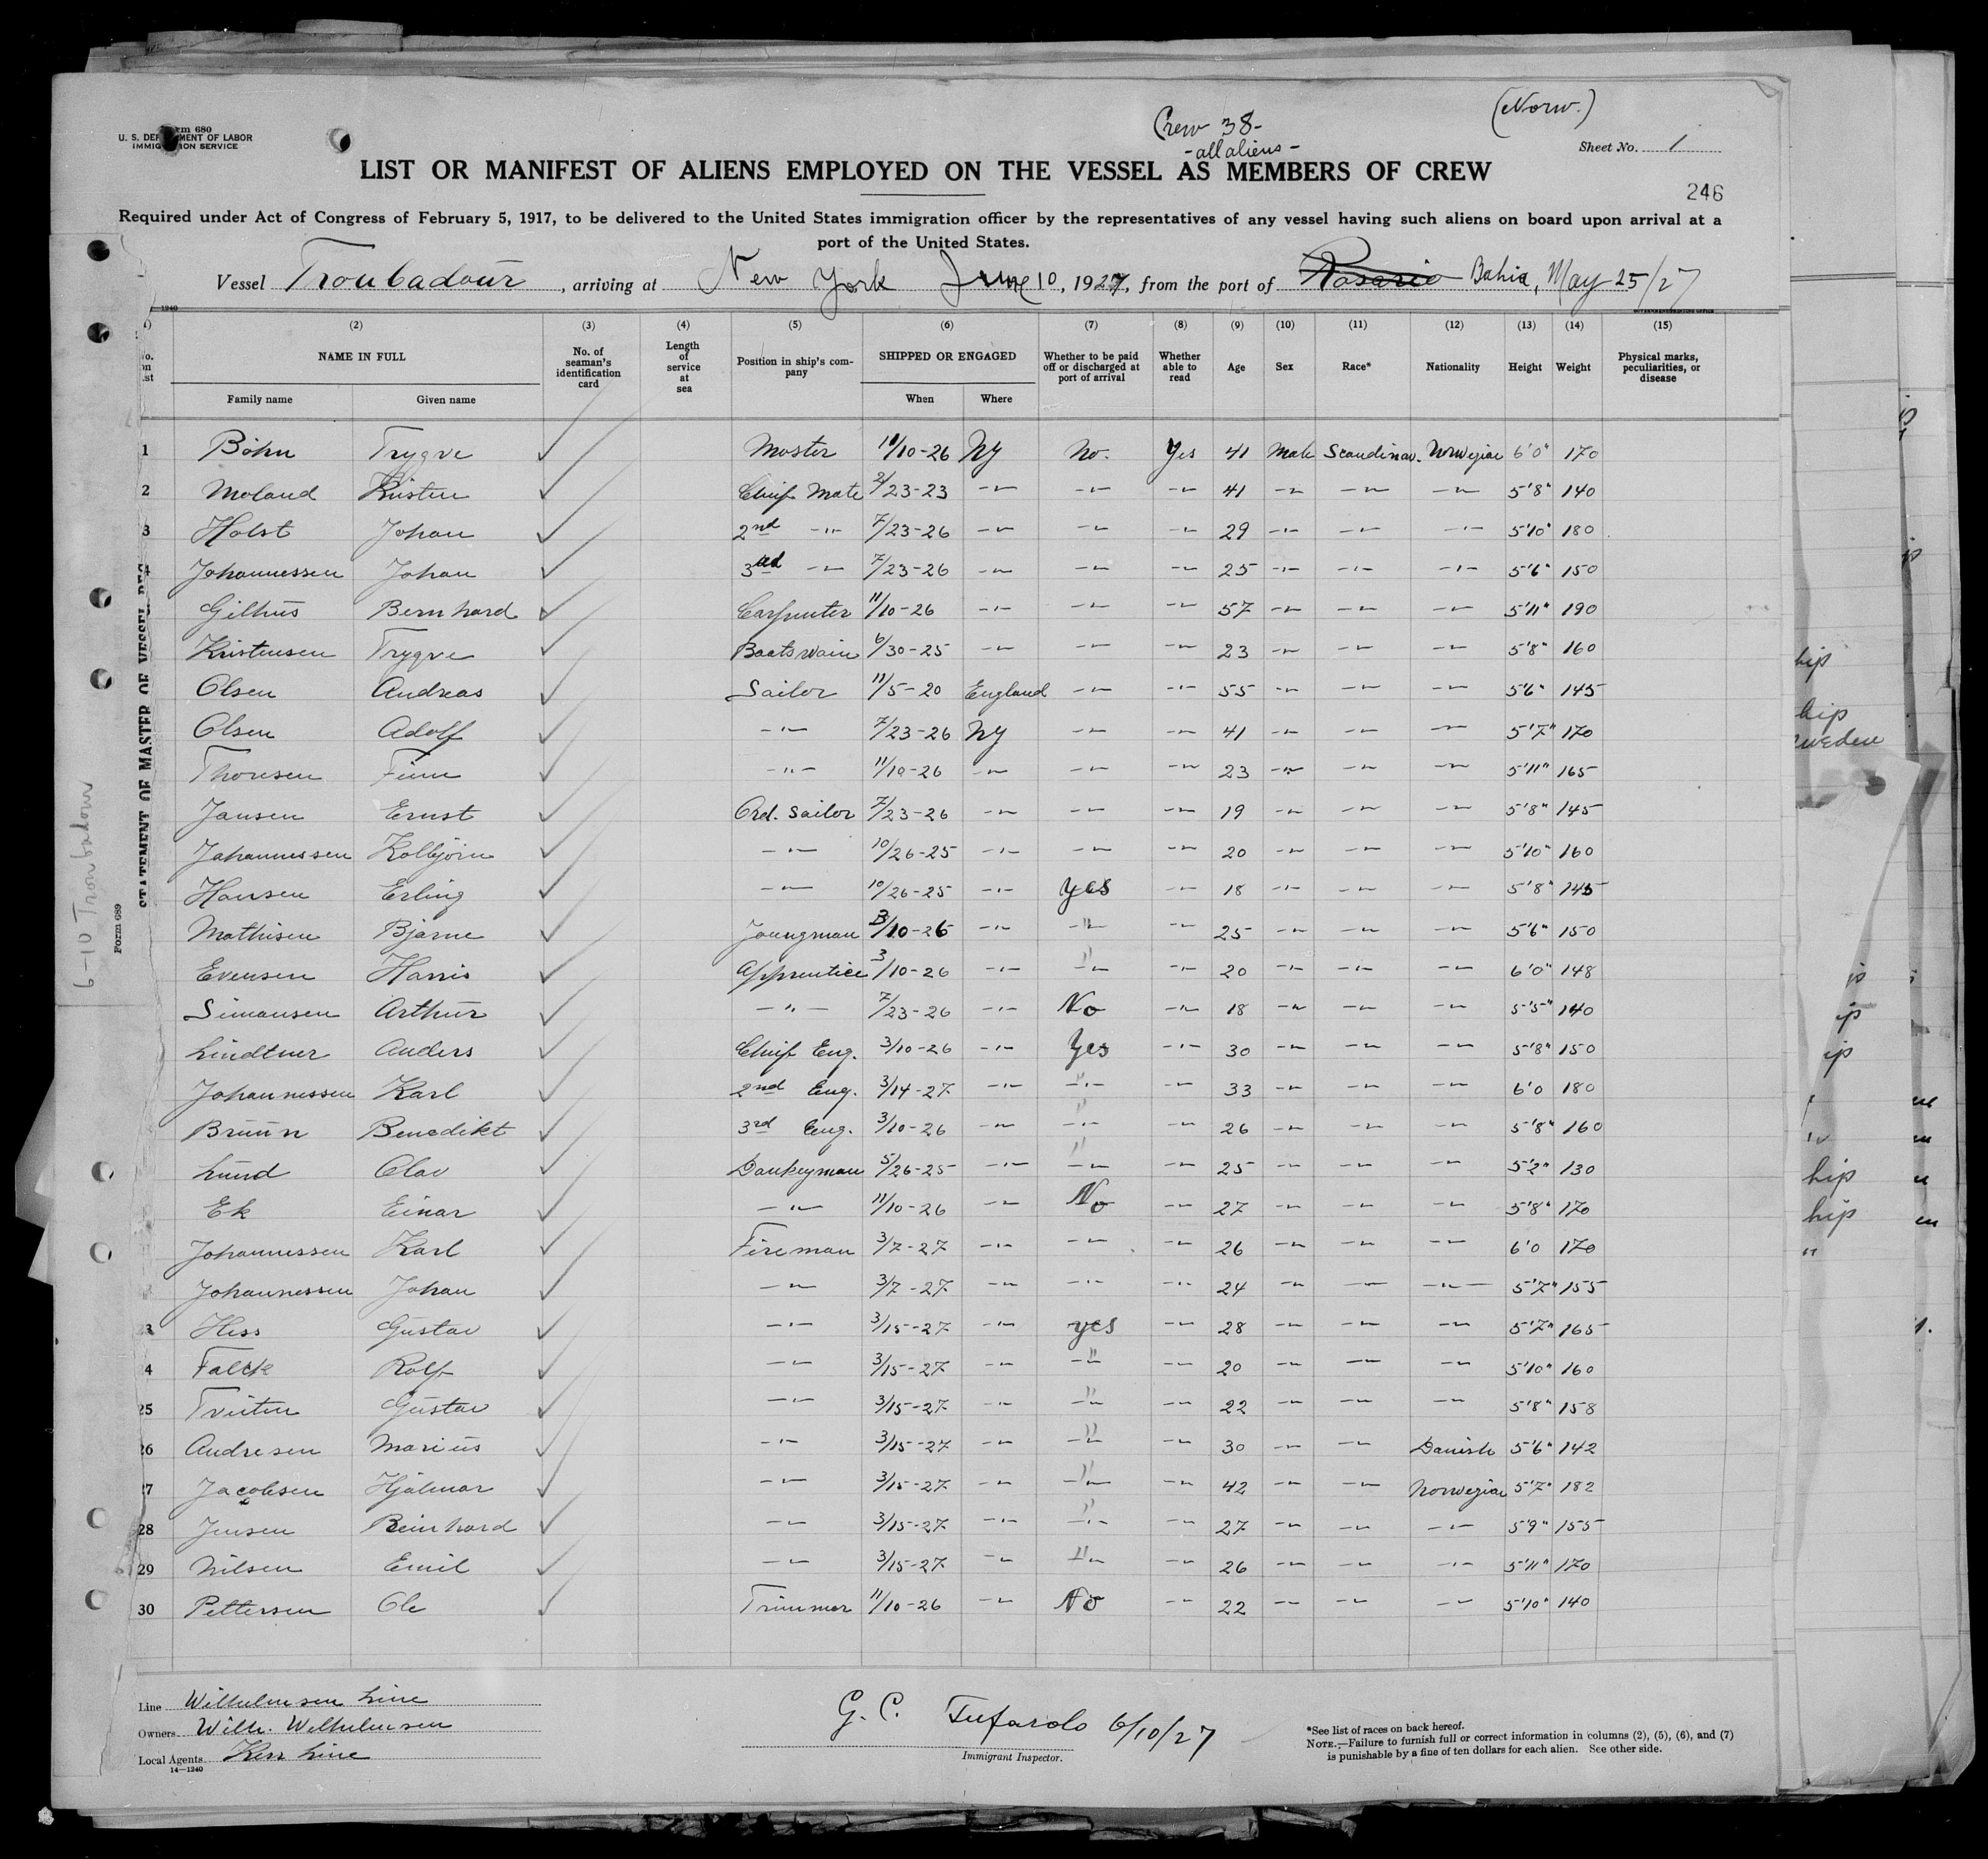 (Norw.)
Crew 38-
- all aliens -
Form 680
U. S. DEPARTMENT OF LABOR
IMMIGRATION SERVICE
Sheet No. 1
LIST OR MANIFEST OF ALIENS EMPLOYED ON THE VESSEL AS MEMBERS OF CREW
246
Required under Act of Congress of February 5, 1917, to be delivered to the United States immigration officer by the representatives of any vessel having such aliens on board upon arrival at a
port of the United States.
Vessel Troubadour, arriving at New York June 10, 1927, from the port of Rosario Bahia, May 25/27
(2) (3) (4) (5) (6) (7) (8) (9) (10) (11) (12) (13) (14) (15)
NAME IN FULL
Family name Given name
No. of seaman's identification card
Length of service at sea
Position in ship's company
SHIPPED OR ENGAGED
When Where
Whether to be paid off or discharged at port of arrival
Whether able to read
Age Sex Race* Nationality Height Weight
Physical marks, peculiarities, or disease
1 Böhn Trygve ✓ Master 11/10-26 NY No. Yes 41 Male Scandinav. Norwegian 6'0" 170
2 Moland Kristen ✓ Chief Mate 2/23-23 -"- -"- -"- 41 -"- -"- -"- 5'8" 140
3 Holst Johan ✓ 2nd -"- 7/23-26 -"- -"- -"- 29 -"- -"- -"- 5'10" 180
4 Johannessen Johan ✓ 3rd -"- 7/23-26 -"- -"- -"- 25 -"- -"- -"- 5'6" 150
Gilhus Bernhard ✓ Carpenter 11/10-26 -"- -"- -"- 57 -"- -"- -"- 5'11" 190
Kristensen Trygve ✓ Boatswain 6/30-25 -"- -"- -"- 23 -"- -"- -"- 5'8" 160
Olsen Andreas ✓ Sailor 11/5-20 England -"- -"- 55 -"- -"- -"- 5'6" 145
Olsen Adolf ✓ -"- 7/23-26 NY -"- -"- 41 -"- -"- -"- 5'7" 170
Thoresen Finn ✓ -"- 11/10-26 -"- -"- -"- 23 -"- -"- -"- 5'11" 165
Jansen Ernst ✓ Ord. Sailor 7/23-26 -"- -"- -"- 19 -"- -"- -"- 5'8" 145
Johannessen Kolbjörn ✓ -"- 10/26-25 -"- -"- -"- 20 -"- -"- -"- 5'10" 160
Hansen Erling ✓ -"- 10/26-25 -"- yes -"- 18 -"- -"- -"- 5'8" 145
Mathisen Bjarne ✓ Joungman 3/10-26 -"- -"- -"- 25 -"- -"- -"- 5'6" 150
Evensen Harris ✓ Apprentice 3/10-26 -"- -"- -"- 20 -"- -"- -"- 6'0" 148
Simonsen Arthur ✓ -"- 7/23-26 -"- No -"- 18 -"- -"- -"- 5'5" 140
Lindtner Anders ✓ Chief Eng. 3/10-26 -"- Yes -"- 30 -"- -"- -"- 5'8" 150
Johannessen Karl ✓ 2nd Eng. 3/14-27 -"- -"- -"- 33 -"- -"- -"- 6'0 180
Bruun Benedikt ✓ 3rd Eng. 3/10-26 -"- -"- -"- 26 -"- -"- -"- 5'8" 160
Lund Olav ✓ Donkeyman 5/26-25 -"- -"- -"- 25 -"- -"- -"- 5'2" 130
Ek Einar ✓ -"- 11/10-26 -"- No -"- 27 -"- -"- -"- 5'8" 170
Johannessen Karl ✓ Fireman 3/7-27 -"- -"- -"- 26 -"- -"- -"- 6'0 170
Johannessen Johan ✓ -"- 3/7-27 -"- -"- -"- 24 -"- -"- -"- 5'7" 155
23 Hess Gustav ✓ -"- 3/15-27 -"- yes -"- 28 -"- -"- -"- 5'7" 165
4 Falck Rolf ✓ -"- 3/15-27 -"- -"- -"- 20 -"- -"- -"- 5'10" 160
25 Tveiten Gustav ✓ -"- 3/15-27 -"- -"- -"- 22 -"- -"- -"- 5'8" 158
26 Andresen Marius ✓ -"- 3/15-27 -"- -"- -"- 30 -"- -"- Danish 5'6" 142
27 Jacobsen Hjalmar ✓ -"- 3/15-27 -"- -"- -"- 42 -"- -"- Norwegian 5'7" 182
28 Jensen Reinhard ✓ -"- 3/15-27 -"- -"- -"- 27 -"- -"- -"- 5'9" 155
29 Nilsen Emil ✓ -"- 3/15-27 -"- -"- -"- 26 -"- -"- -"- 5'11" 170
30 Pettersen Ole ✓ Trimmer 11/10-26 -"- No -"- 22 -"- -"- -"- 5'10" 140
Line Wilhelmsen Line
Owners Wilh. Wilhelmsen
Local Agents Kerr Line
14-1240
G. C. Tufarolo 6/10/27
Immigrant Inspector.
*See list of races on back hereof.
NOTE.—Failure to furnish full or correct information in columns (2), (5), (6), and (7)
is punishable by a fine of ten dollars for each alien. See other side.
6-10 Troubadour
Form 689
STATEMENT OF MASTER OF VESSEL
hip
hip
Sweden
ip
ip
hip
hip
"